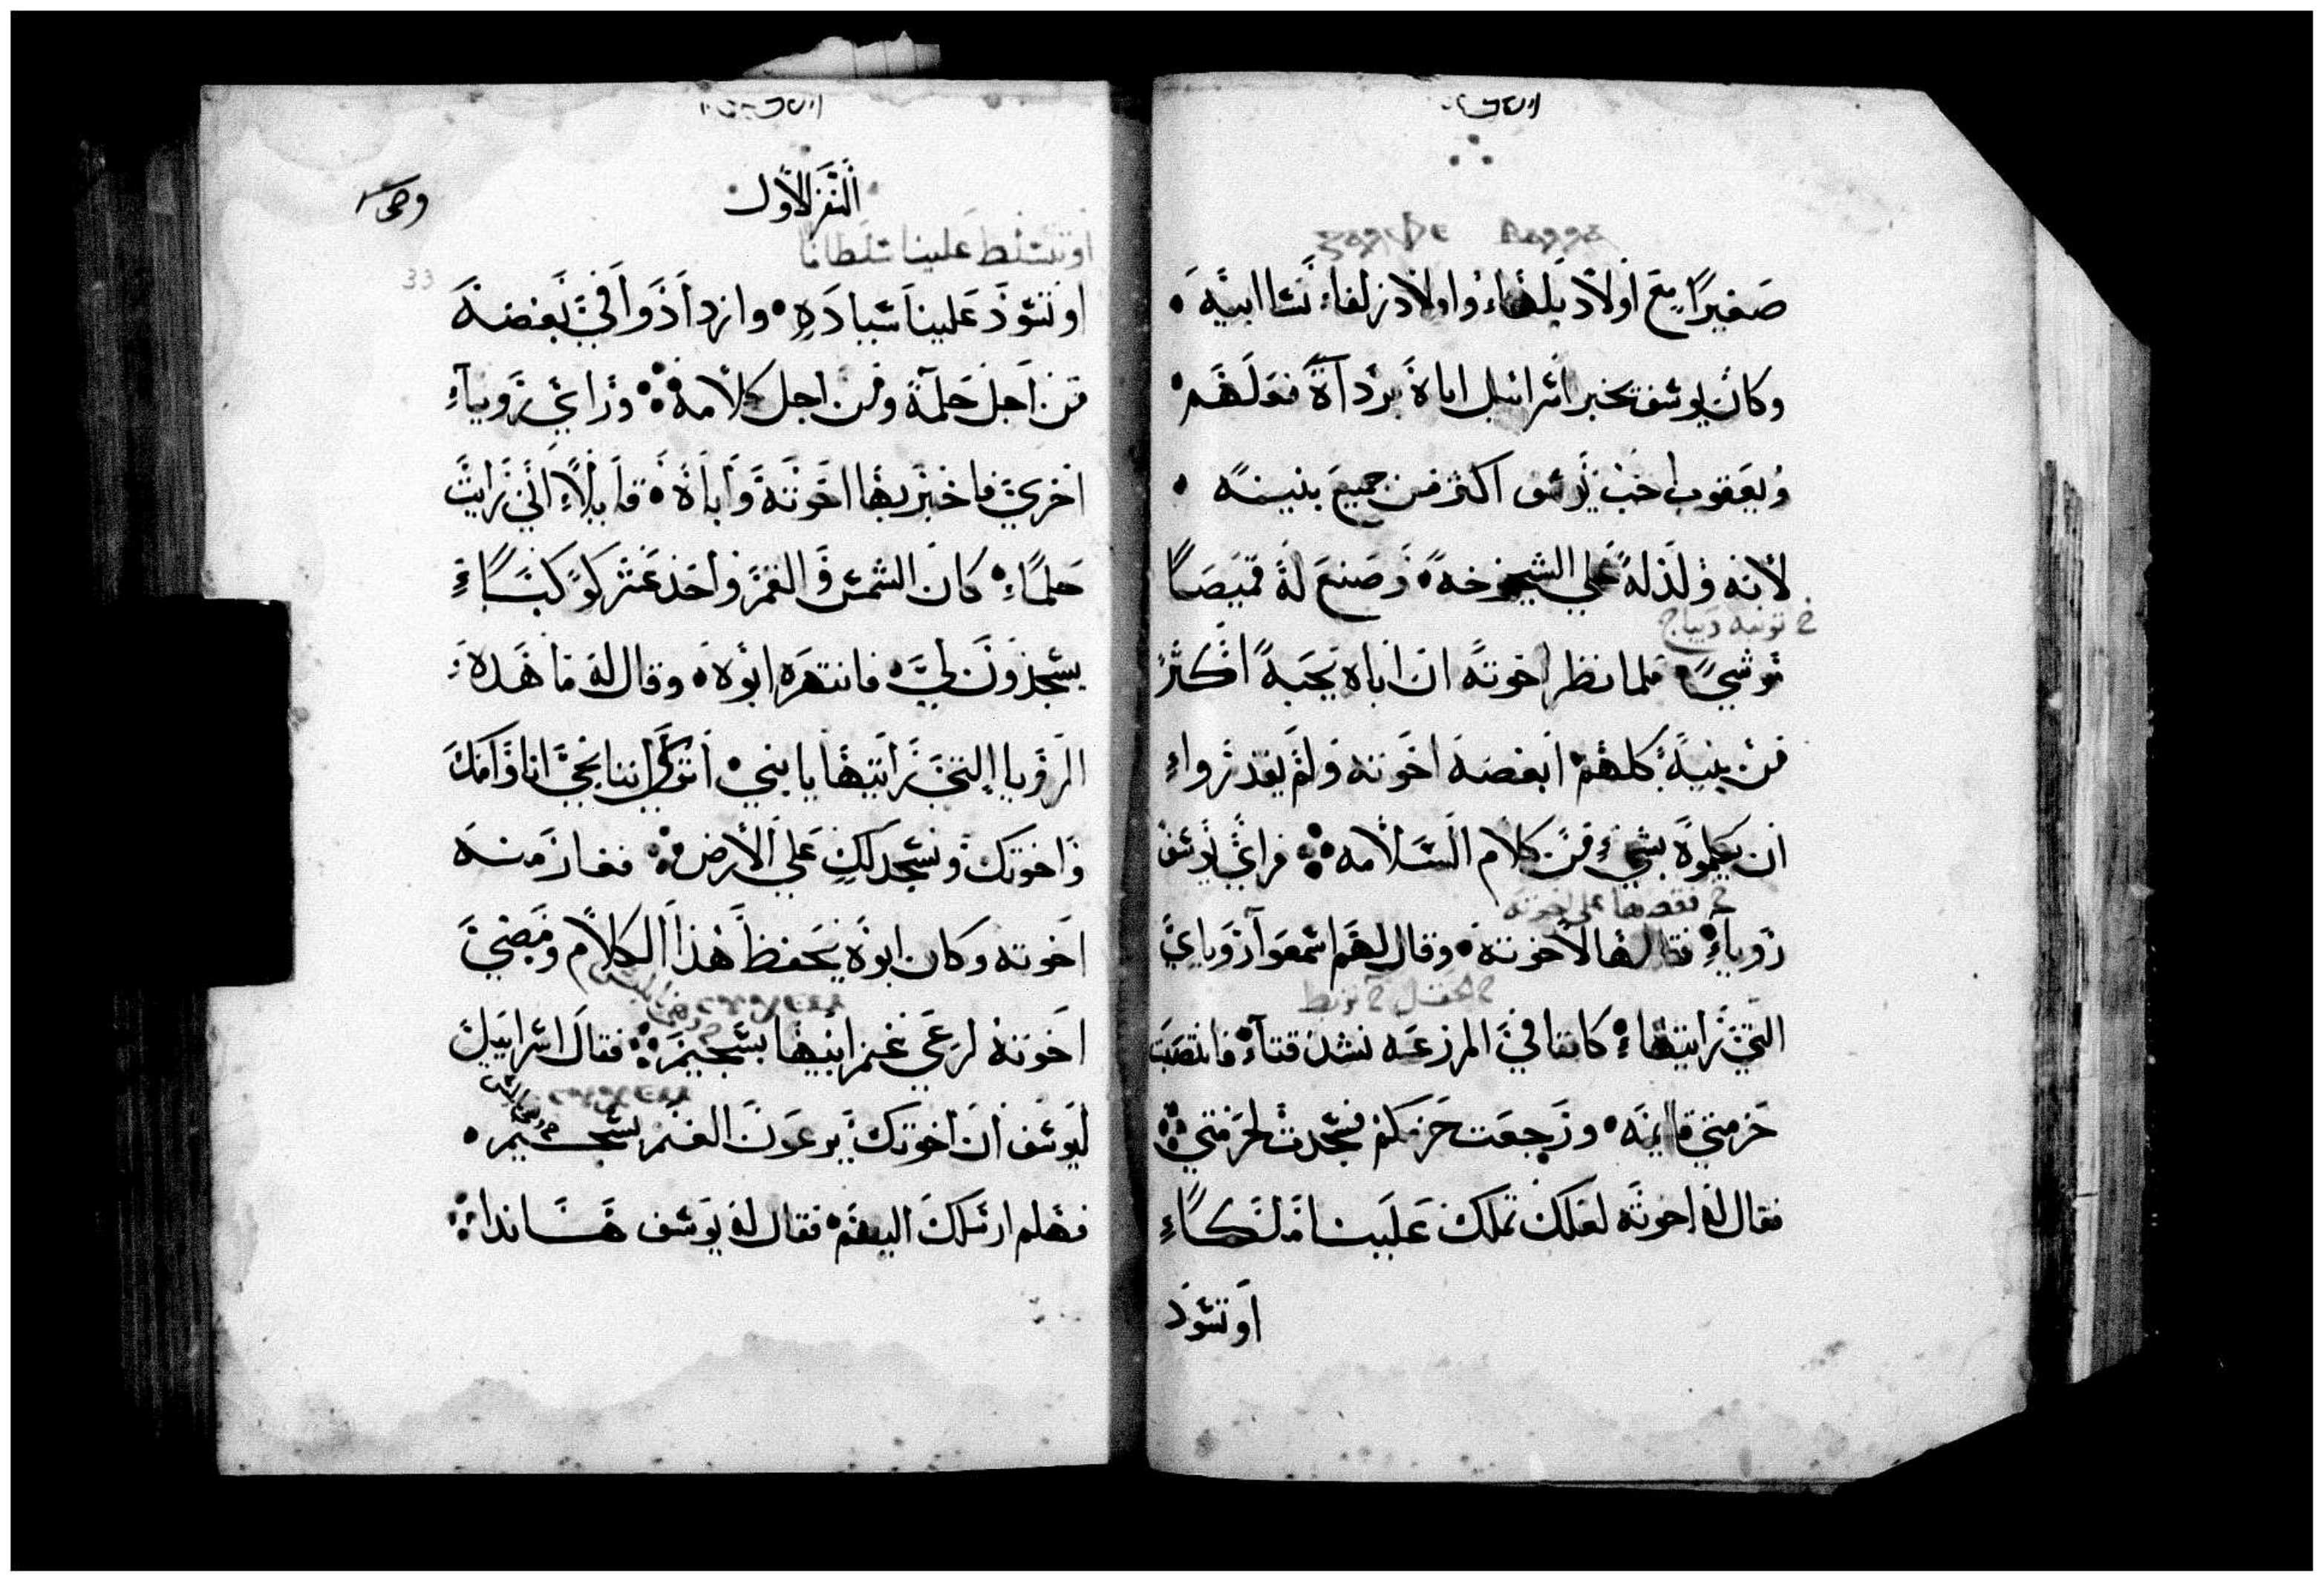 صغيرًا مع اولاد بلهاء واولاد زلفاء نسا ابيه
وكان يوسف يخبر اسراييل اباه برداة فعلهم
ويعقوب احب يوسف اكثر من جميع بنينه
لانه ولد له علي الشيخوخه وصنع له قميصًا
خ تونيه ديباج
موشيً فلما نظر اخوته ان اباه يحبه اكثر
من بنيه كلهم ابغضه اخوته ولم يقدرواء
ان يكلموه بشيء من كلام السلامه فراي يوسف
خ فقصها علي اخوته
روياء فقالها لاخوته وقال لهم اسمعوا روياي
خ الحقل خ نربط
التي رايتهاء كاننا في المزرعه نشد قتاء فانتصبت
حزمتي قايمه ورجعت حزمكم فسجدت لحزمتي
فقال له اخوته لعلك تملك علينا ملكًاء
او تسود
السفر الاول
او تتسلط علينا سلطانا
33
او تسود علينا سياده وازدادوا في بغضه
من اجل حلمه ومن اجل كلامه وراي روياء
اخري فاخبر بها اخوته واباه قايلاء اني رايت
حلماء كان الشمس والقمر واحد عشر كوكباء
يسجدون لي فانتهره ابوه وقال له ما هذه
الرويا التي رايتها يا بني اتري اننا نجي انا وامك
واخوتك ونسجد لك علي الارض فغار منه
اخوته وكان ابوه يحفظ هذا الكلام ومضي
اخوته لرعي غنم ابيها بسجيم فقال اسراييل
ليوسف ان اخوتك يرعون الغنم بسجيم
فهلم ارسلك اليهم فقال له يوسف هاندا